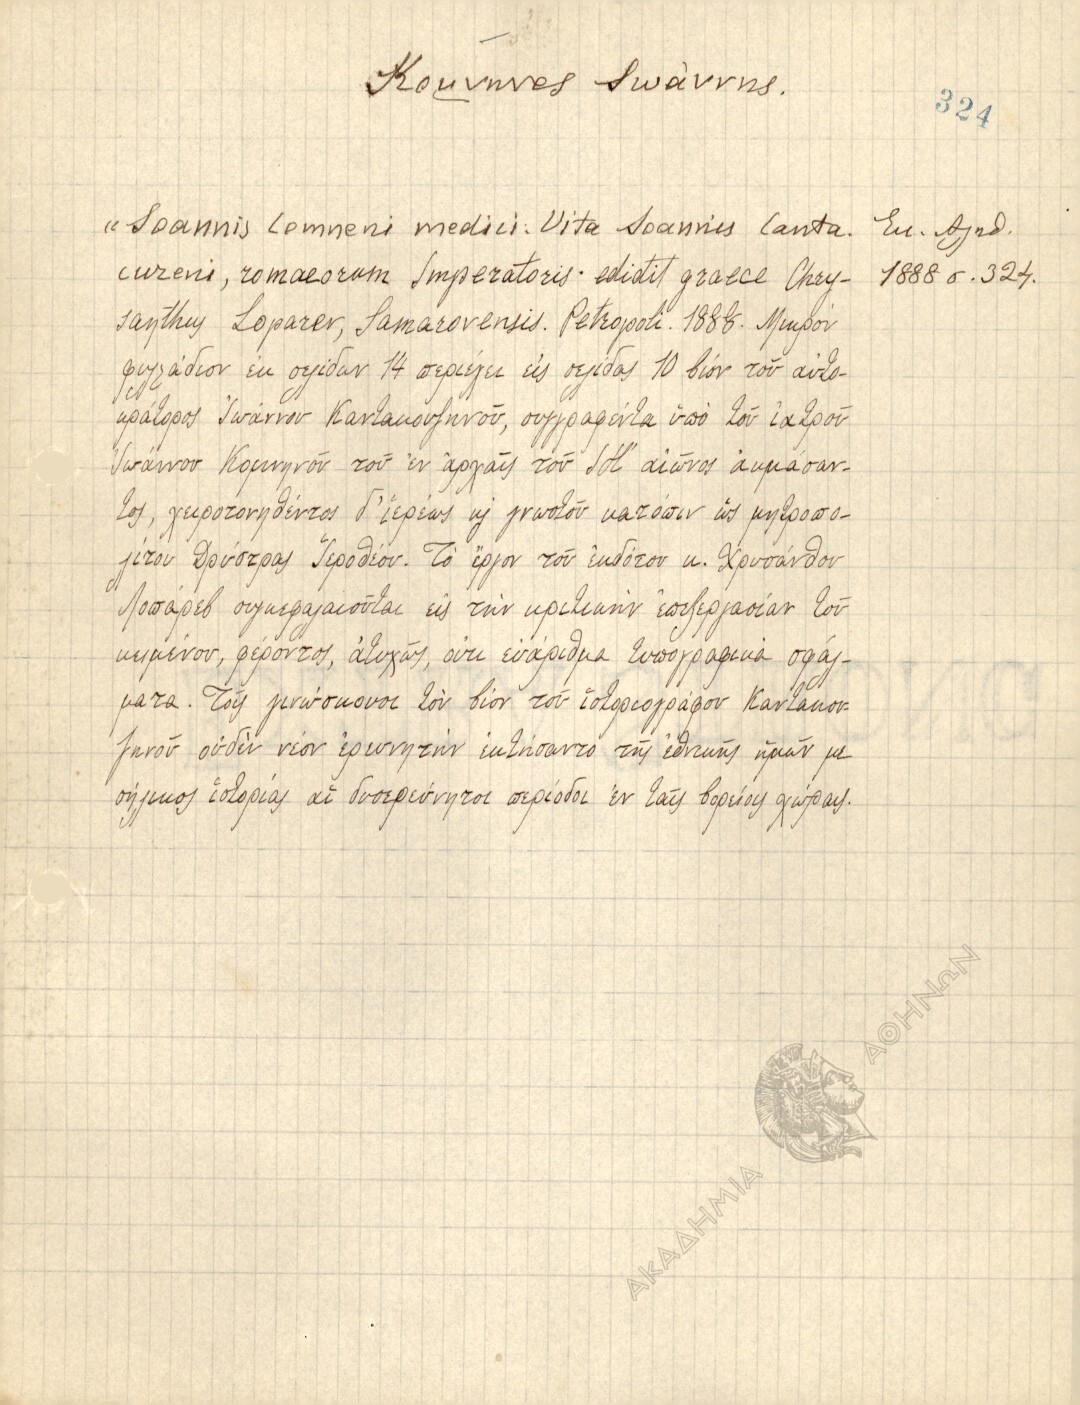 Κομνηνος Ιωάννης.
324
"Ioannis Comneni medici. Vita Ioannis Canta.
cureni, romaeorum Imperatoris. edidit graece Chry-
santhus Loparev, Samarovensis. Petropoli. 1888. Μικρόν
φυλλάδιον ἐκ σελίδων 14 περιέχει εἰς σελίδας 10 βίον τοῦ αὐτο-
κράτορος Ἰωάννου Καντακουζηνοῦ, συγγραφέντα ὑπὸ τοῦ ἰατροῦ
Ἰωάννου Κομνηνοῦ τοῦ ἐν ἀρχαῖς τοῦ ΙΗ' αἰῶνος ἀκμάσαν-
τος, χειροτονηθέντος δ' ἱερέως κ γνωστοῦ κατόπιν ὡς μητροπο-
λίτου Δρύστρας Ἱεροθέου. Τὸ ἔργον τοῦ ἐκδότου κ. Χρυσάνθου
Λοπάρεβ συγκεφαλαιοῦται εἰς τὴν κριτικὴν ἐπεξεργασίαν τοῦ
κειμένου, φέροντος, ἀτυχῶς, οὐκ εὐάριθμα τυπογραφικὰ σφάλ-
ματα. Τοῖς γινώσκουσι τὸν βίον τοῦ ἱστοριογράφου Καντακου-
ζηνοῦ οὐδὲν νέον ἐρευνητὴν ἐκτήσαντο τῆς ἐθνικῆς ἡμῶν με
σήλικος ἱστορίας αἱ δυσερεύνητοι περίοδοι ἐν ταῖς βορείοις χώραις.
Εκ. Αληθ.
1888 σ. 324.
ΑΚΑΔΗΜΙΑ ΑΘΗΝΩΝ